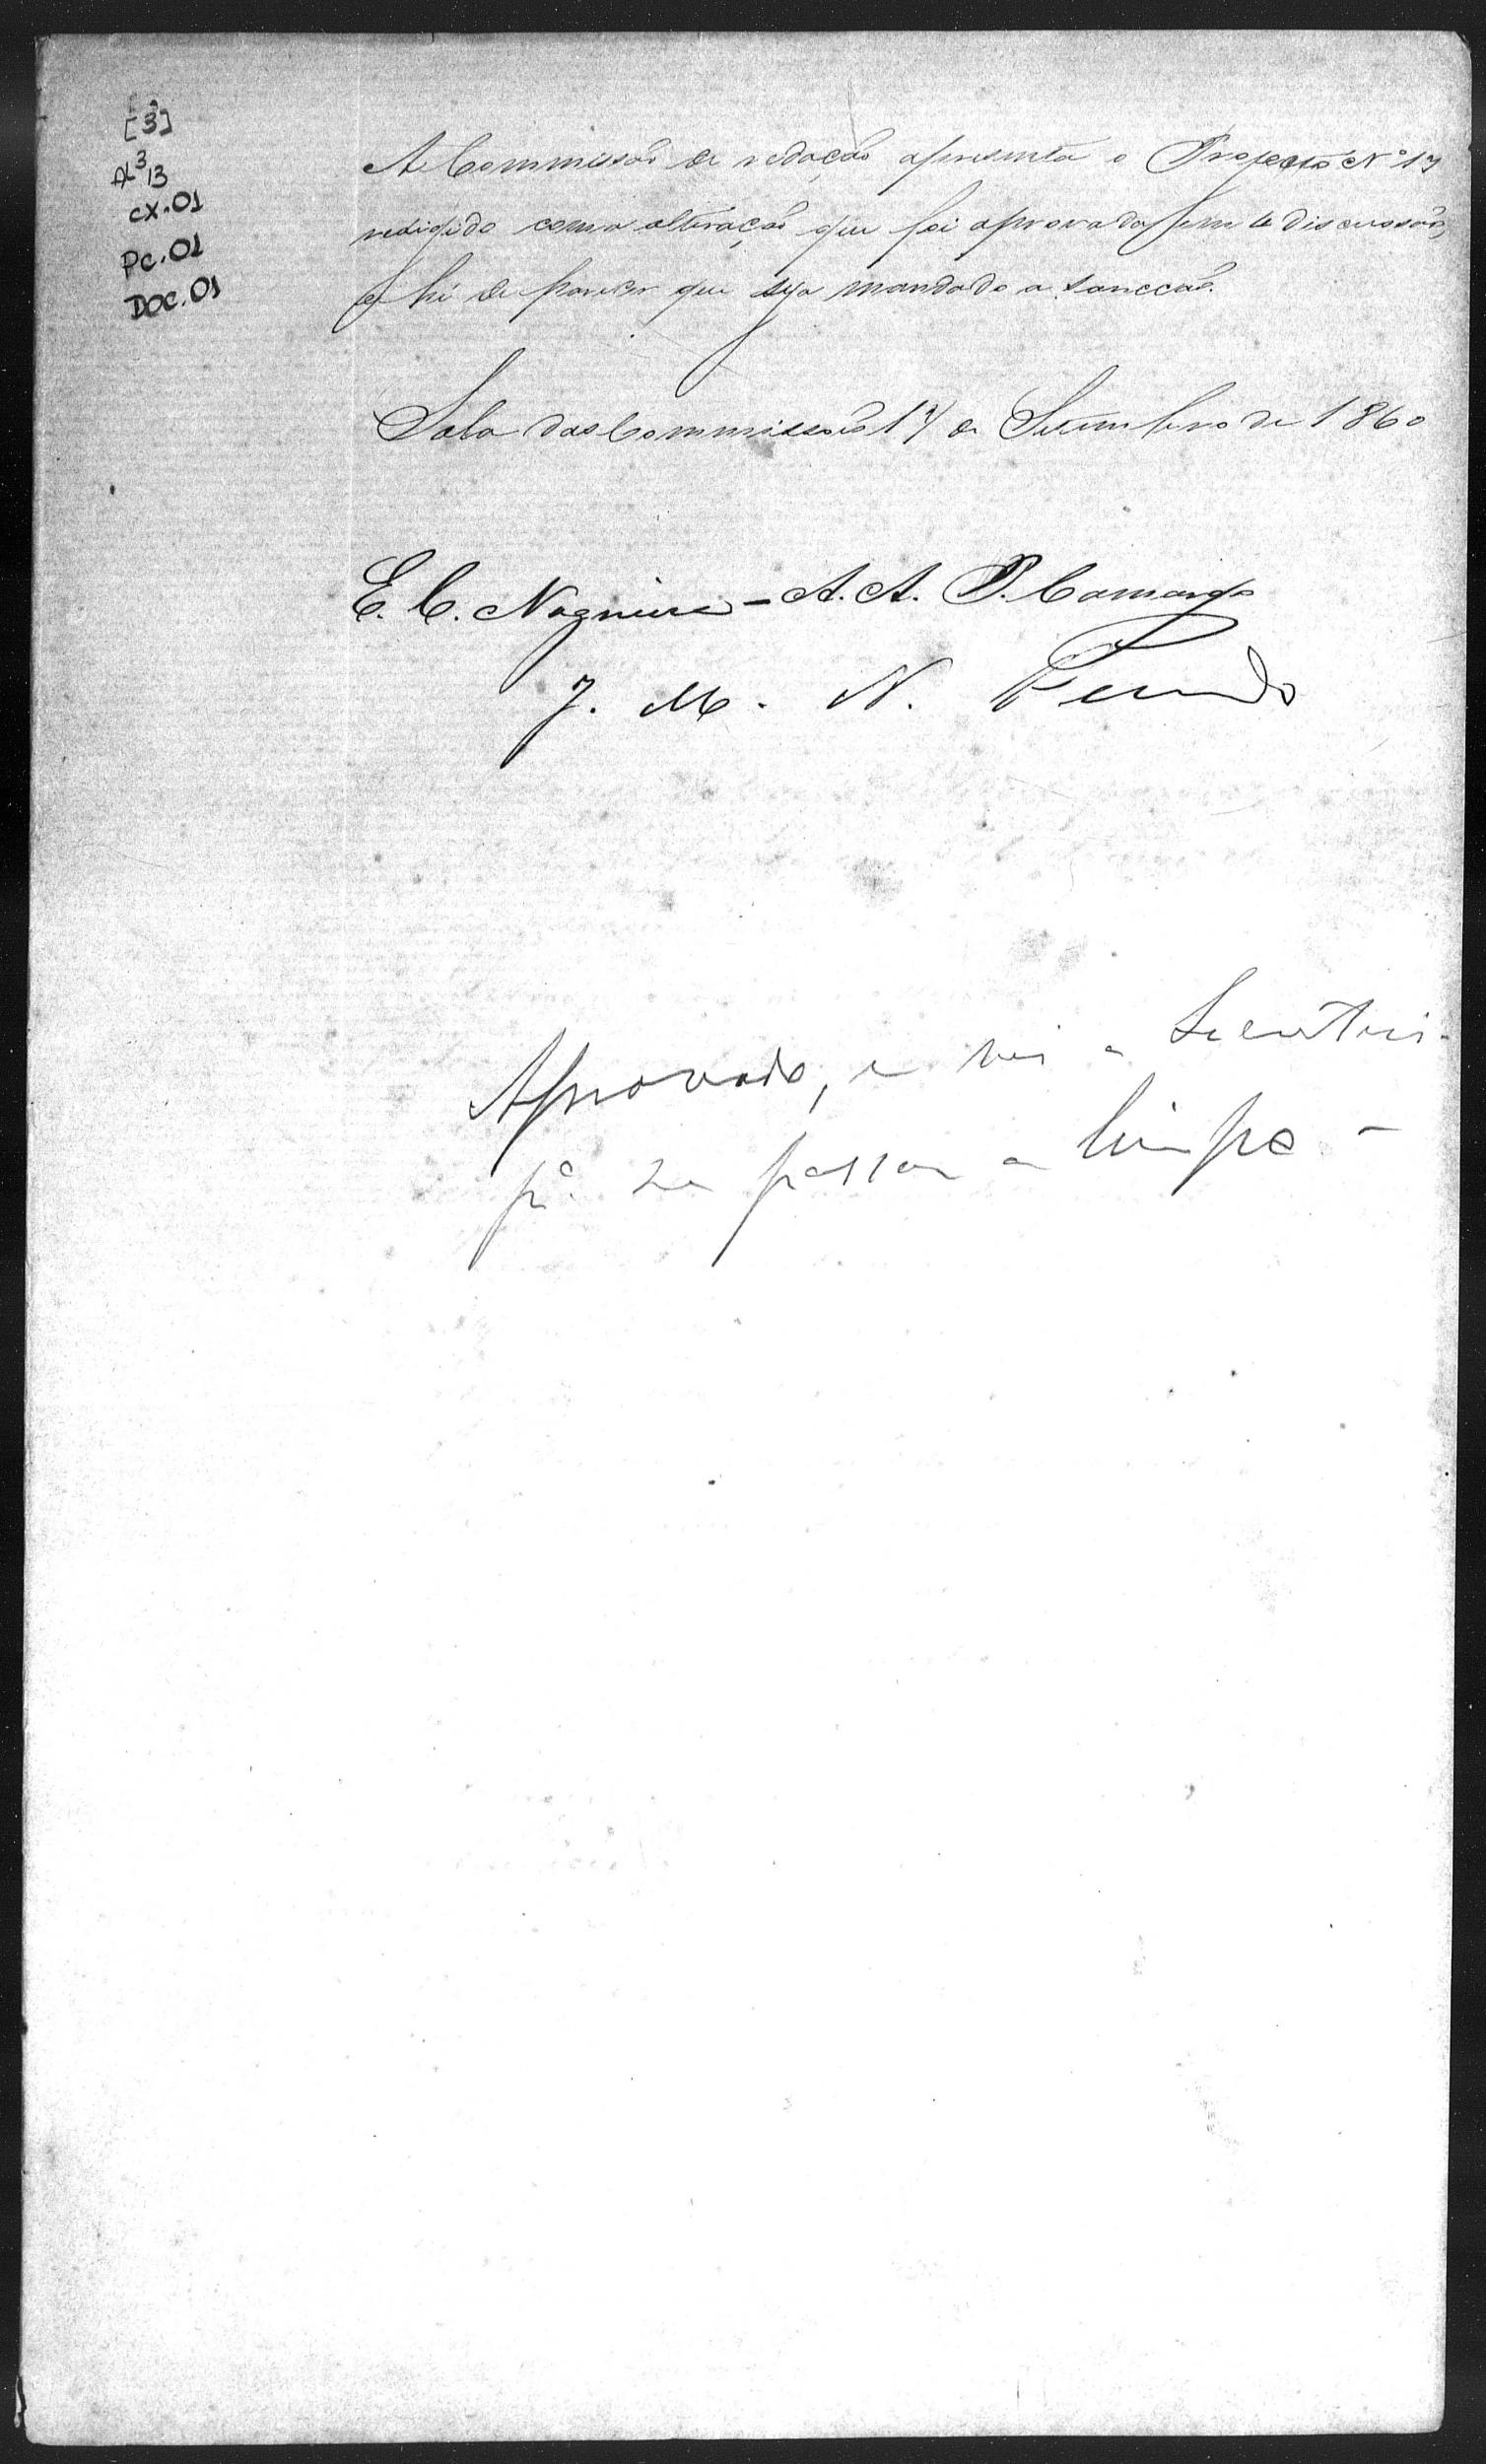 [3]
AL³13
CX.01
PC.01
DOC.01
A Commissão de redação apresenta o Projecto Nº 17
redigido com a alteração que foi aprovada em discussão,
e hé de parecer que seja mandado a sancção.
Sala das Commissoẽs 17 de Setembro de 1860
E. C. Nogueira - A. A. P. Camargo
J. M. N.
Aprovado, e vai a Secretari-
pª se passar a limpo -